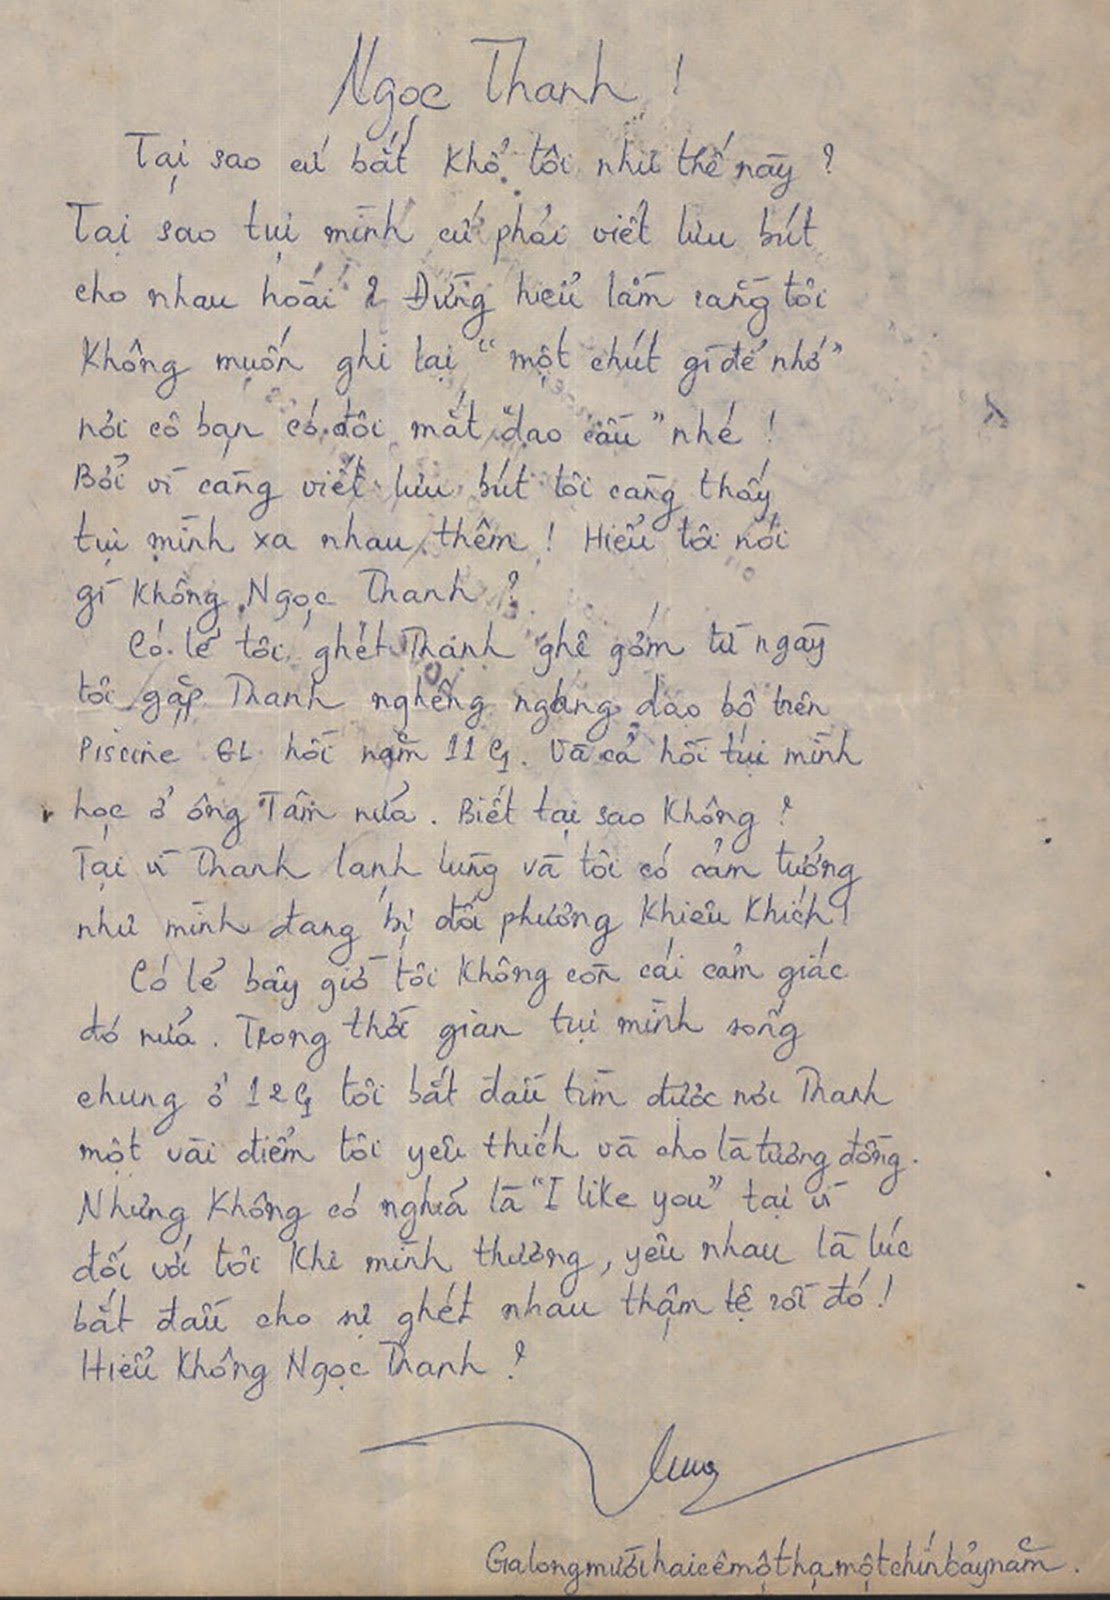 Ngọc Thanh !
Tại sao cứ bắt khổ tôi như thế này ?
Tại sao tụi mình cứ phải viết lưu bút
cho nhau hoài ? Đừng hiểu lầm rằng tôi
không muốn ghi lại “ một chút gì để nhớ ”
nơi cô bạn có đôi mắt “ dao cầu ” nhé !
Bởi vì càng viết lưu bút tôi càng thấy
tụi mình xa nhau thêm ! Hiểu tôi nói
gì không Ngọc Thanh ?
Có lẻ tôi ghét Thanh ghê gớm từ ngày
tôi gặp Thanh nghênh ngang dạo bộ trên
Piscine GL hồi năm 11 G. Và cả hồi tụi mình
học ở ông Tâm nửa . Biết tại sao không ?
Tại vì Thanh lạnh lùng và tôi có cảm tưởng
như mình đang bị đối phương khiêu khích !
Có lẻ bây giờ tôi không còn cái cảm giác
đó nửa . Trong thời gian tụi mình sống
chung ở 12 G tôi bắt đầu tìm được nơi Thanh
một vài điểm tôi yêu thích và cho là tương đồng.
Nhưng không có nghỉa là “ I like you ” tại vì
đối với tôi khi mình thương, yêu nhau là lúc
bắt đầu cho sự ghét nhau thậm tệ rồi đó !
Hiểu không Ngọc Thanh ?
Gialongmườihaicêmộthạmộtchínbảynăm .